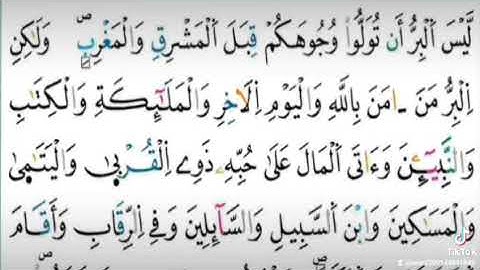 لَّيْسَ اَلْبِرُّ أَن تُوَلُّواْ وُجُوهَكُمْ قِبَلَ اَلْمَشْرِقِ وَالْمَغْرِبِۖ وَلَٰكِنِ
اِلْبِرُّ مَنَ ـ اٰمَنَ بِاللَّهِ وَالْيَوْمِ اِلَاخِرِ وَالْمَلَٰٓئِكَةِ وَالْكِتَٰبِ
وَالنَّبِيٓـِٕۧنَ وَءَاتَى اَلْمَالَ عَلَىٰ حُبِّهِۦ ذَوِے اِلْقُرْبَىٰ وَالْيَتَٰمَىٰ
وَالْمَسَٰكِينَ وَابْنَ اَلسَّبِيلِ وَالسَّآئِلِينَ وَفِے اِلرِّقَابِ وَأَقَامَ
TikTok